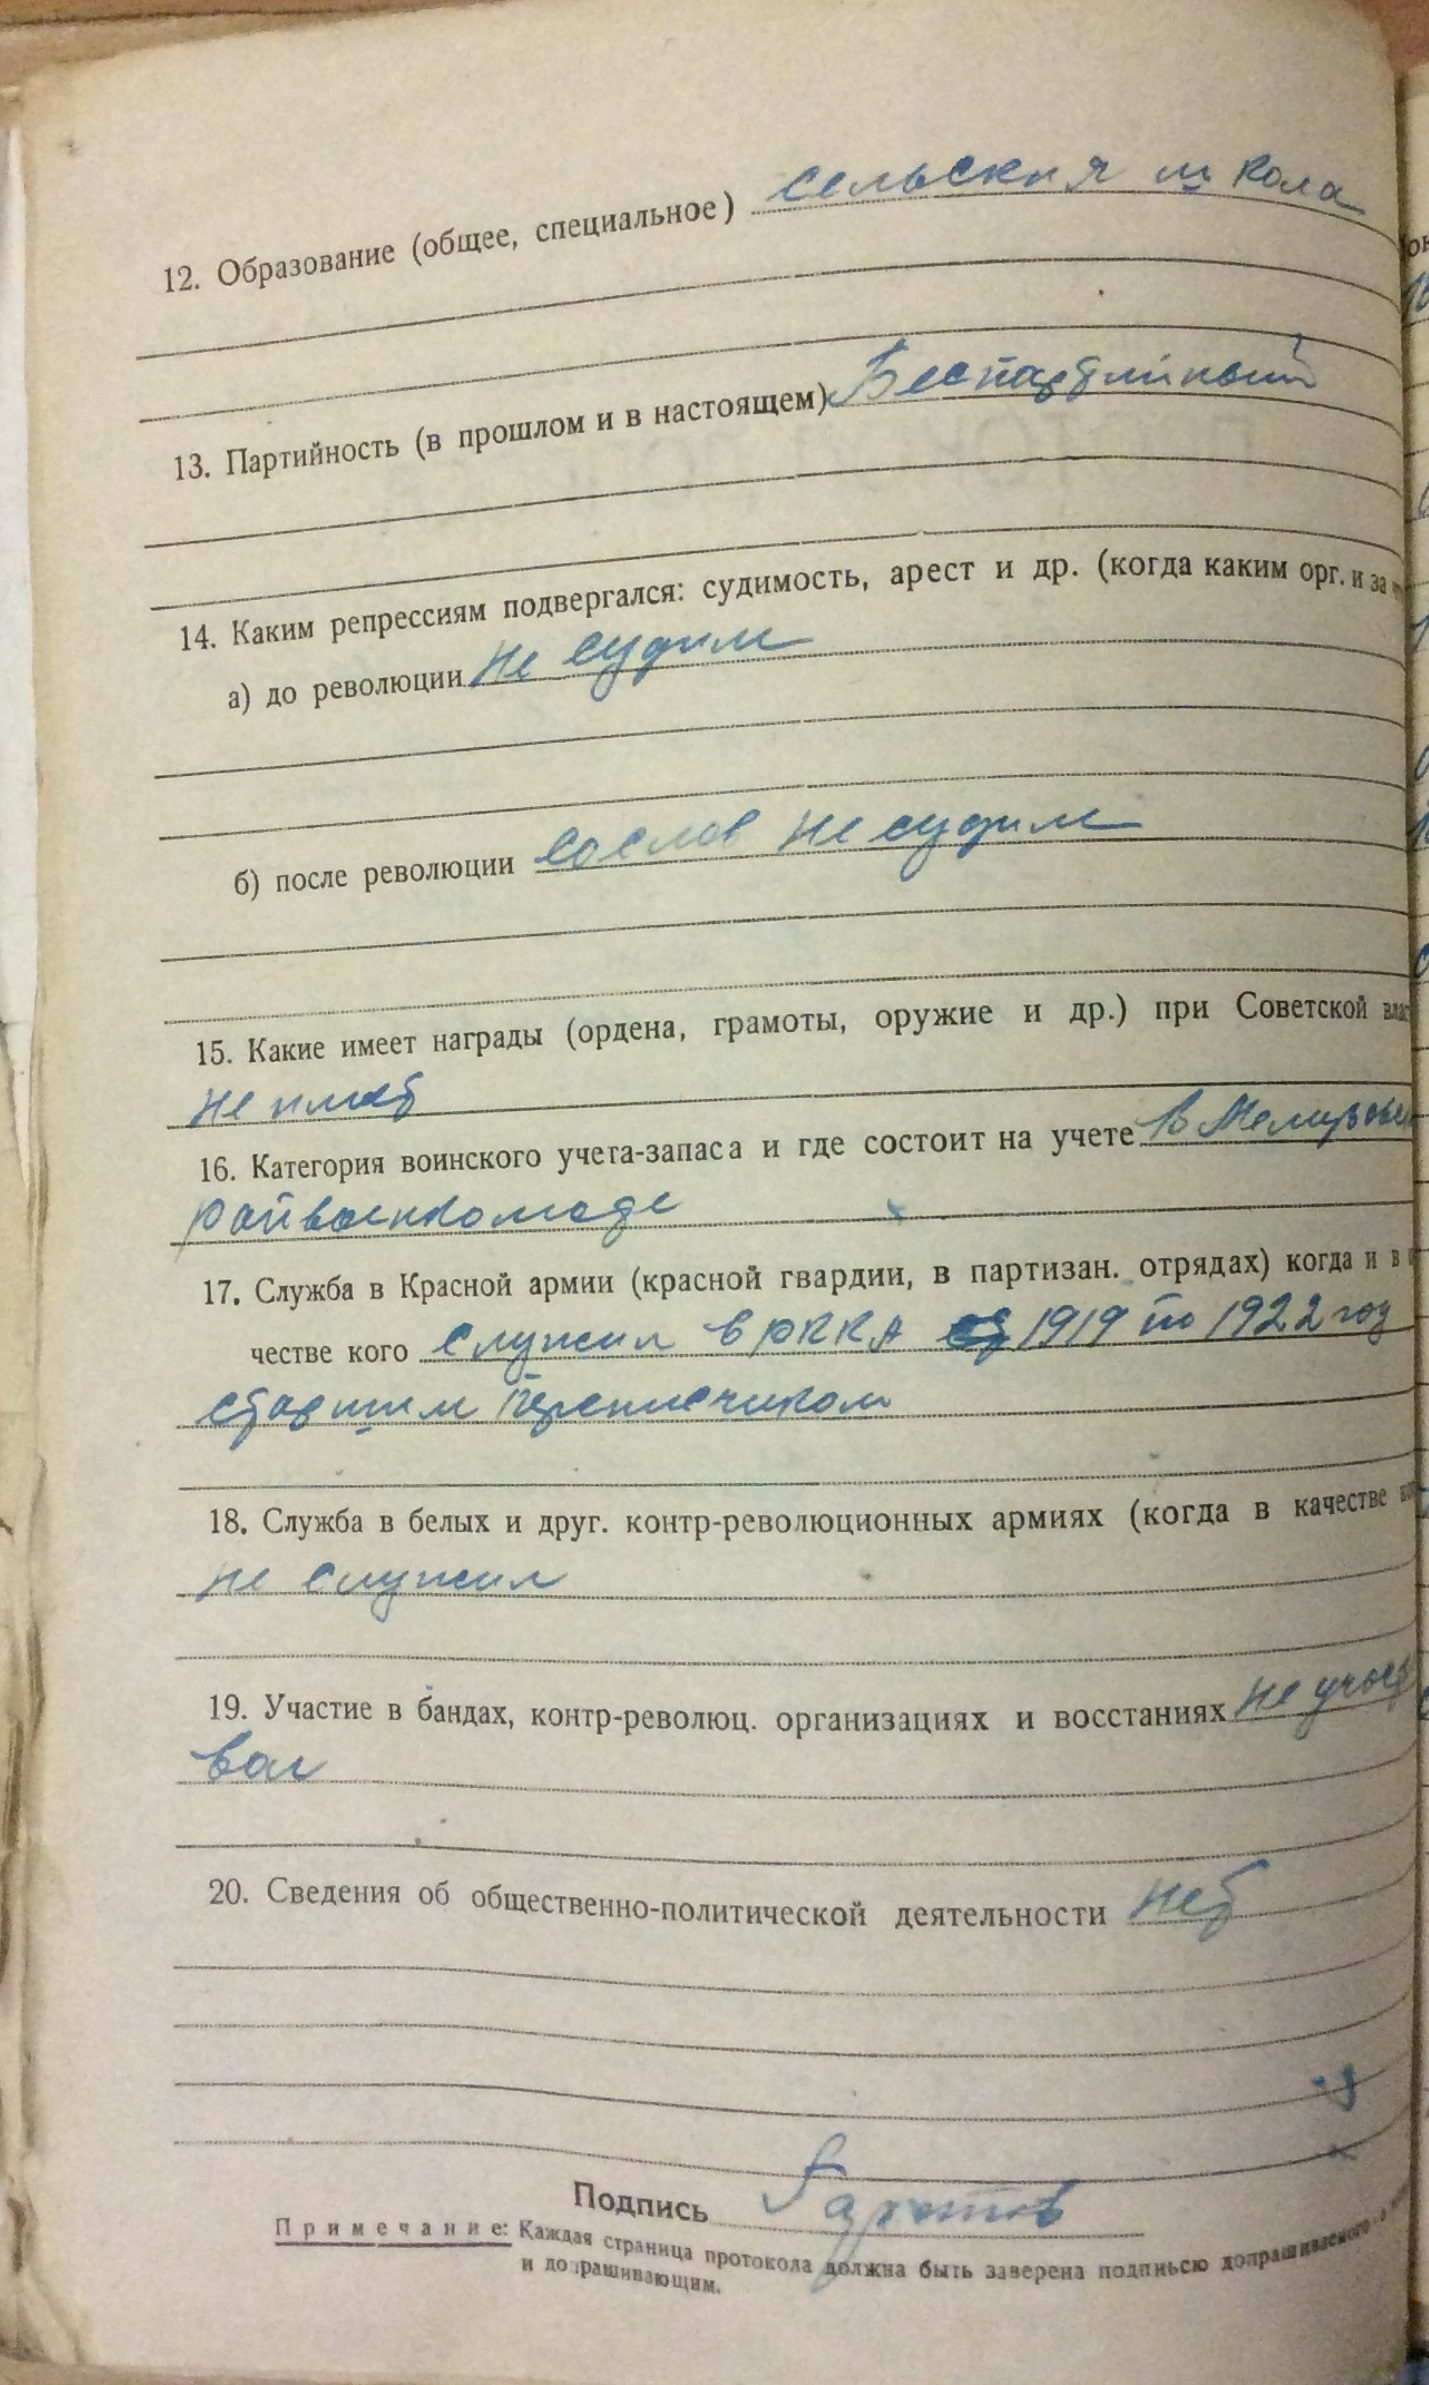 12. Образование (общее, специальное) сельская школа
13. Партийность (в прошлом и в настоящем) Беспартийный
14. Каким репрессиям подвергался: судимость, арест и др. (когда каким орг. и за
а) до революции не судим
б) после революции со слов не судим
15. Какие имеет награды (ордена, грамоты, оружие и др.) при Советской влас
не имеет
16. Категория воинского учета-запаса и где состоит на учете в
райвоенкомате
17. Служба в Красной армии (красной гвардии, в партизан. отрядах) когда и в
честве кого служил в РККА с 1919 по 1922 год
старшим переписчиком
18. Служба в белых и друг. контр-революционных армиях (когда в качестве
не служил
19. Участие в бандах, контр-революц. организациях и восстаниях не участ
вал
20. Сведения об общественно-политической деятельности нет
Подпись
Примечание: Каждая страница протокола должна быть заверена подписью допрашиваемого
и допрашивающим.